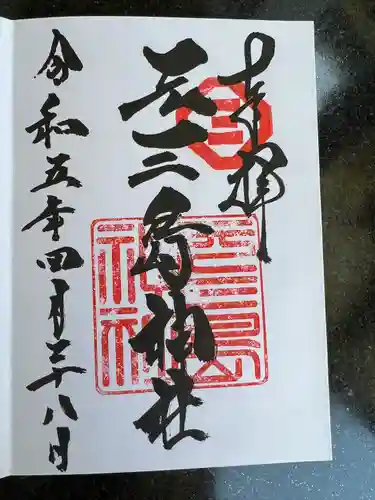 奉拝
元三島神社
令和五年四月二十八日
三
元三島
神社